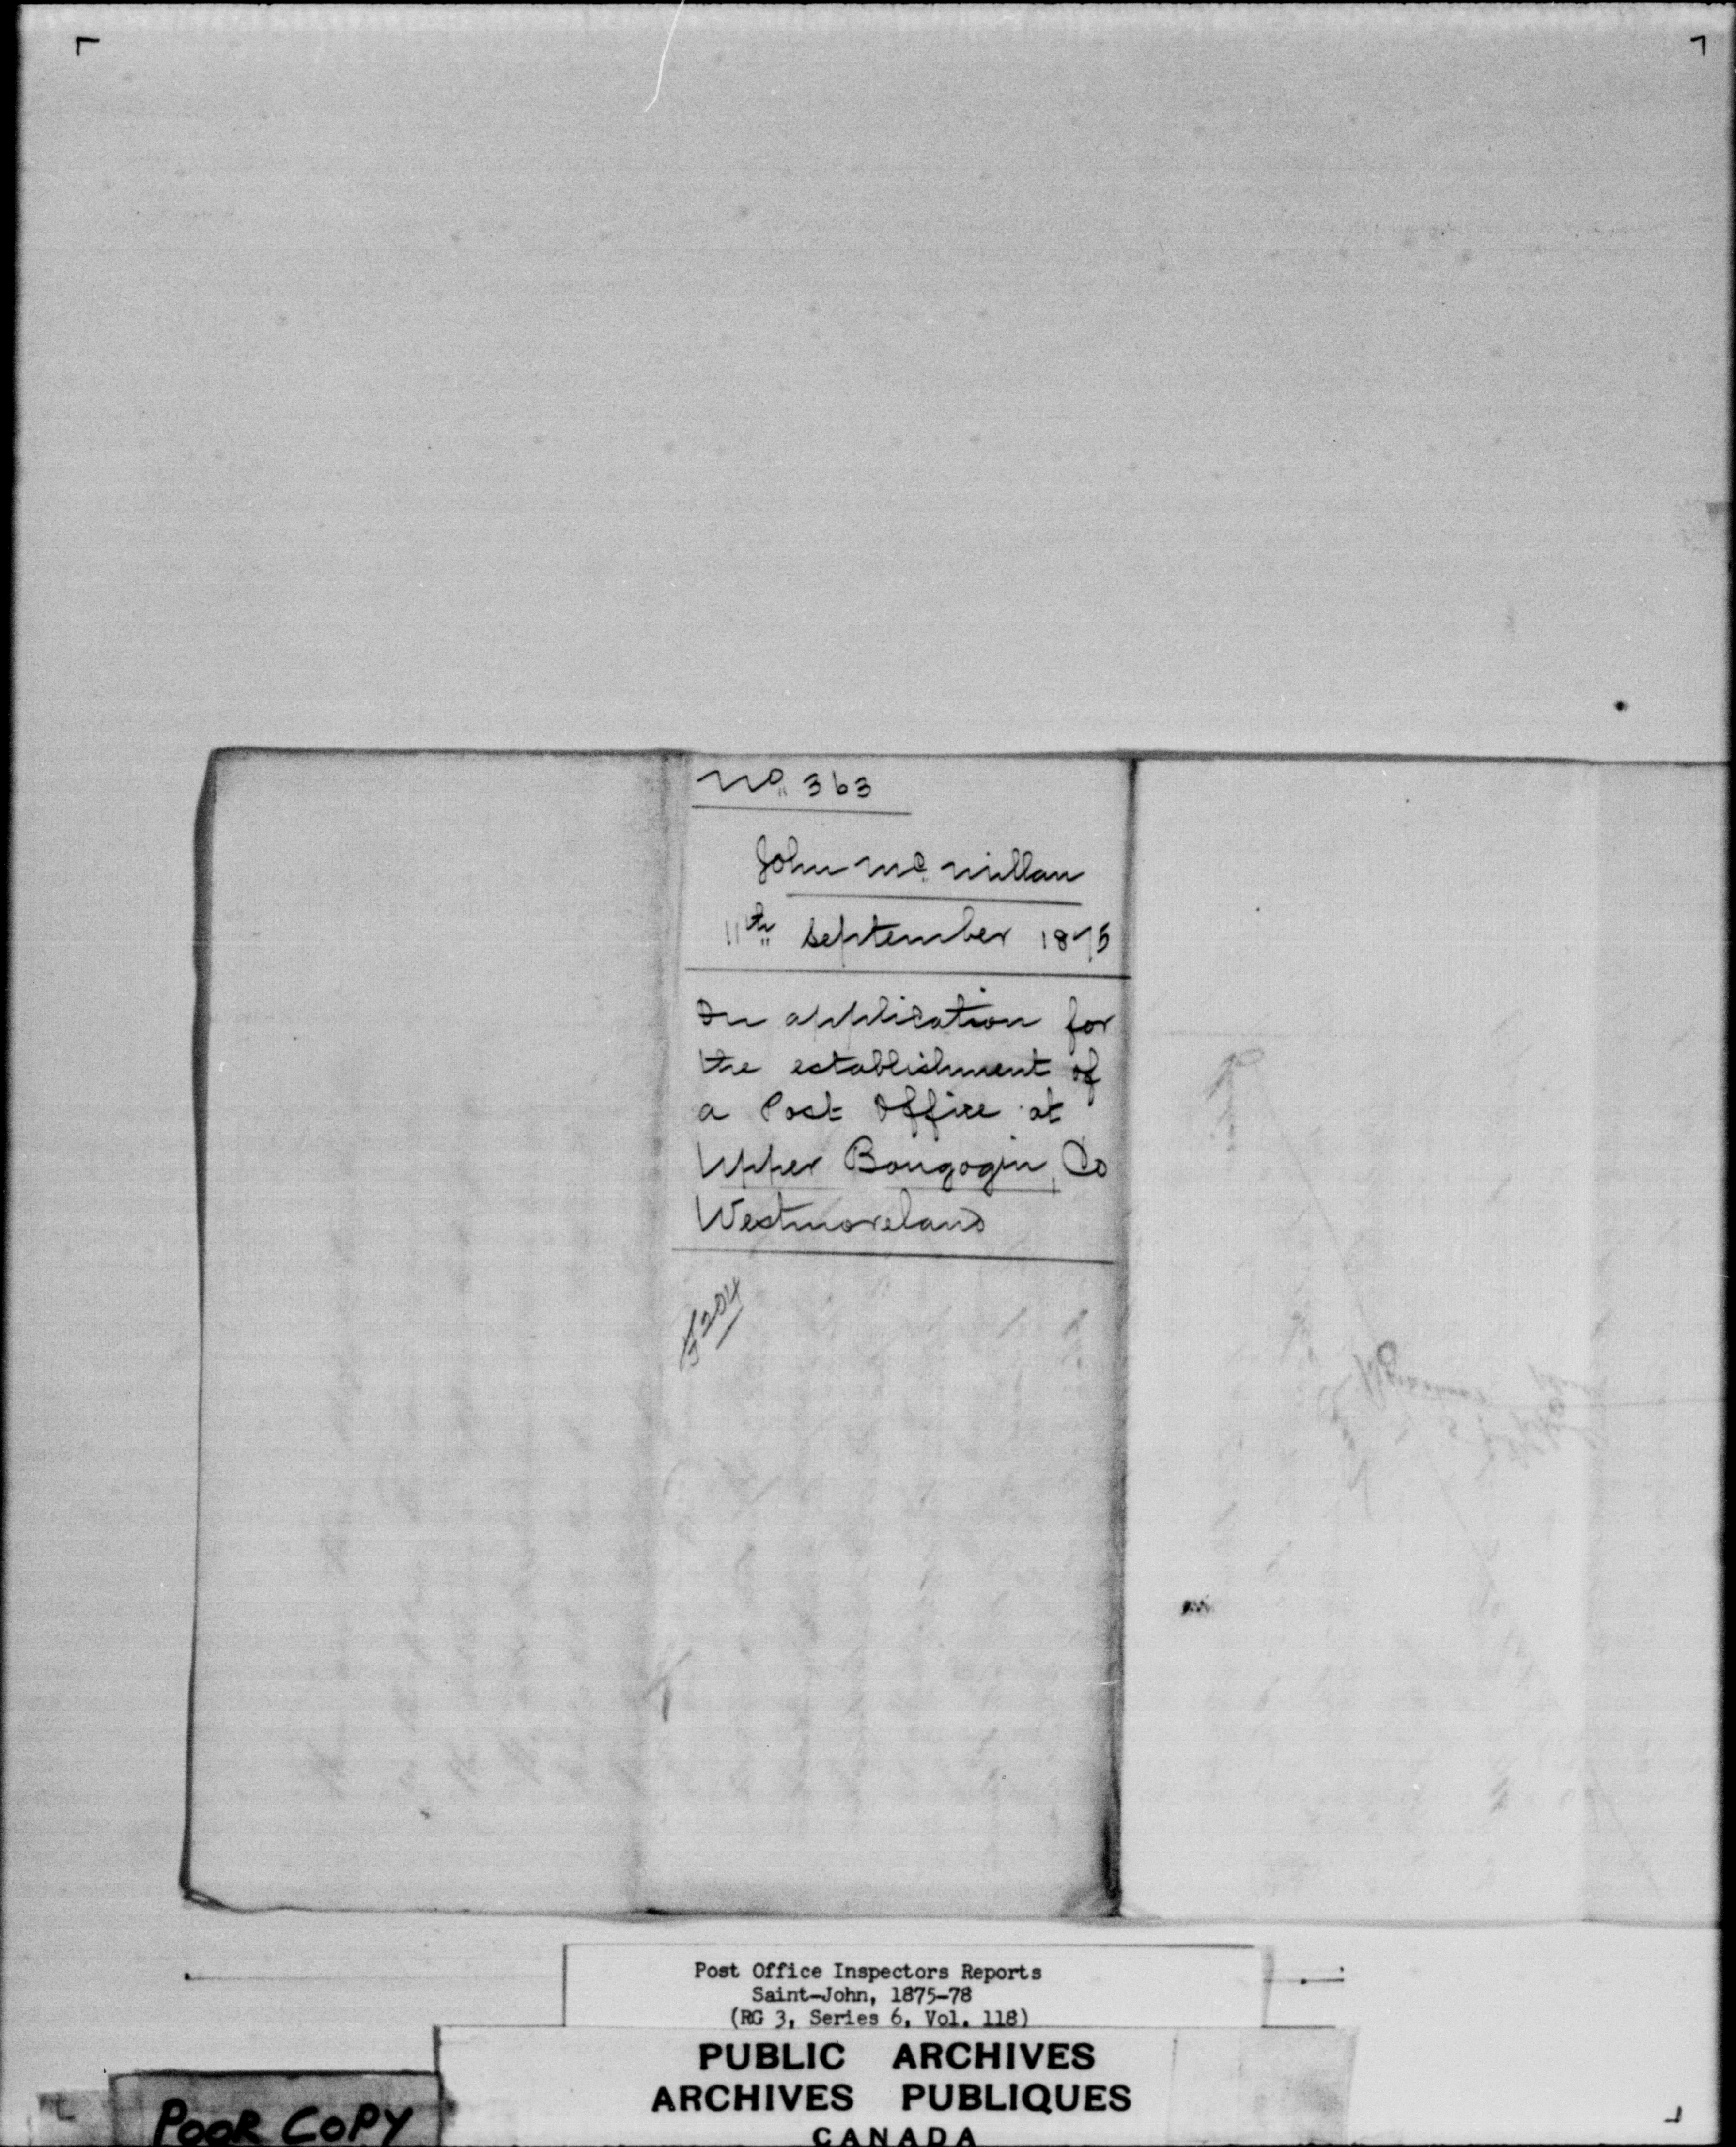 No. 363
John Mc Millan
11th September 1875
On application for
the establishment of
a Post Office at
Upper Bougogin, Co
Westmoreland
204
Post Office Inspectors Reports
Saint-John, 1875-78
(RG 3, Series 6, Vol. 118)
PUBLIC ARCHIVES
ARCHIVES PUBLIQUES
CANADA
POOR COPY